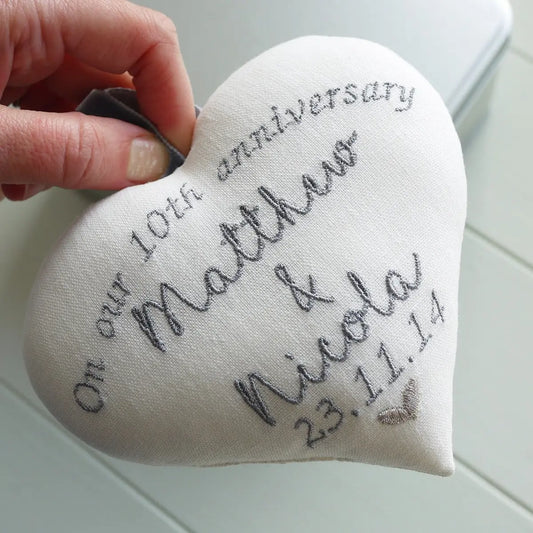 On our 10th anniversary
Matthew
&
Nicola
23.11.14